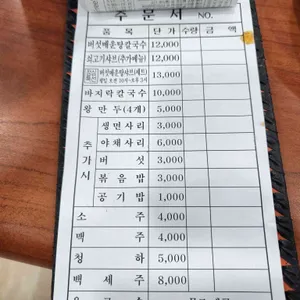 주 문 서 NO.
품 목 단 가 수량 금 액
버섯매운탕칼국수 12,000
쇠고기샤브(추가메뉴) 12,000
버섯매운탕샤브(세트) 13,000
바지락칼국수 10,000
왕 만 두(4개) 5,000
추가시
생면사리 3,000
야채사리 6,000
버 섯 3,000
볶 음 밥 3,000
공 기 밥 1,000
소 주 4,000
맥 주 4,000
청 하 5,000
백 세 주 8,000